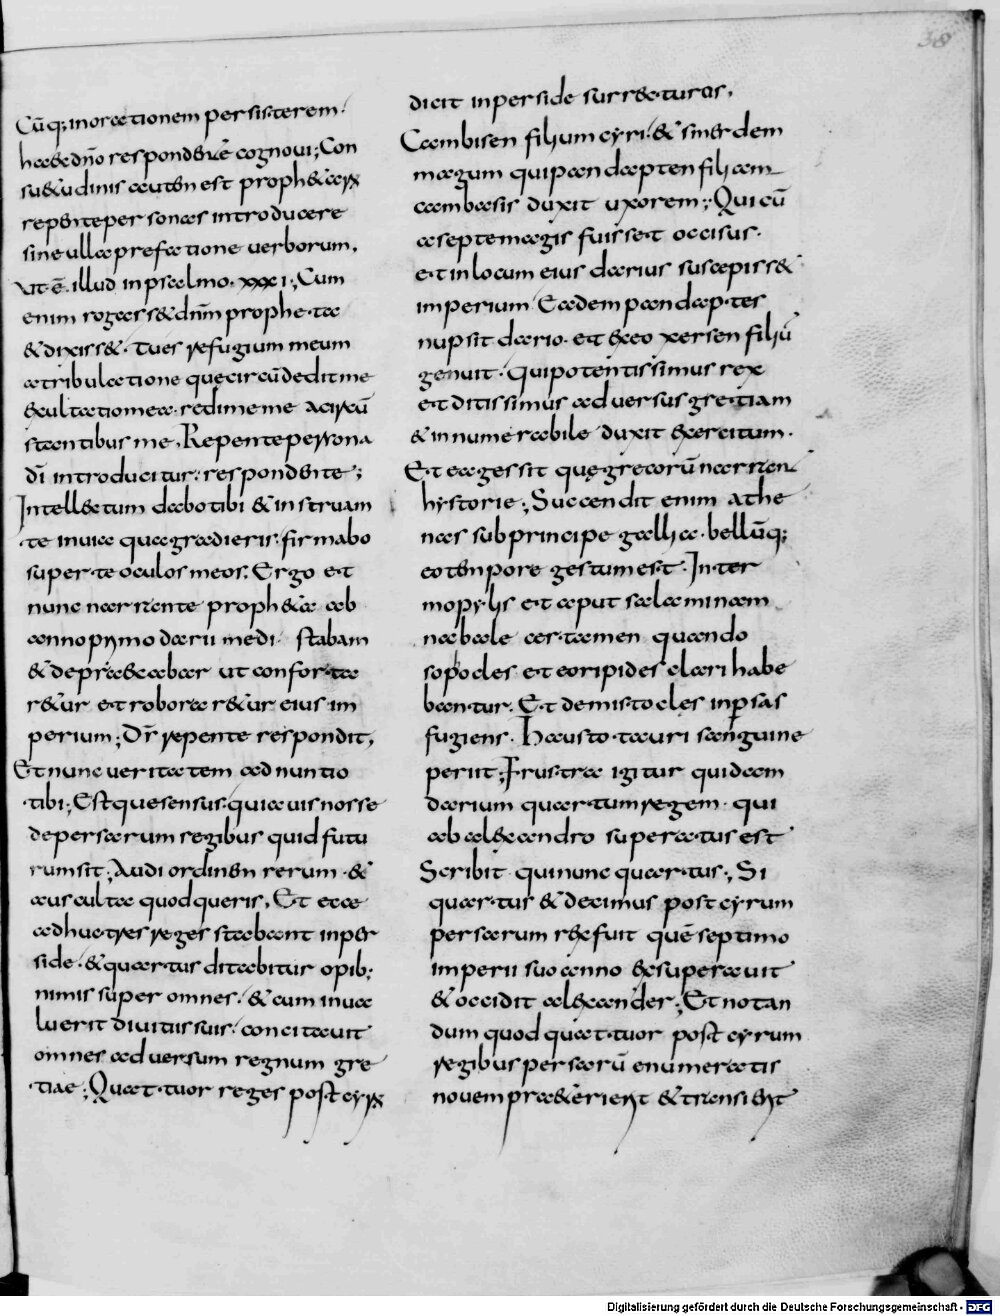 38
Cūq; in oratione persisterem.
haec a dn̄o respondisse cognoui; Con
suetudinis autem est prophetarum
repente personas introducere
sine ulla prefatione uerborum,
Ut ē illud in psalmo. xxxi; Cum
enim rogass& dn̄m propheta
& dixiss&. Tu es refugium meum
a tribulatione que circūdedit me
exultatio mea. redime me a circū
stantibus me, Repente persona
dī introducitur. respondente;
Intellectum dabo tibi & instruam
te in uia qua gradieris. firmabo
super te oculos meos. Ergo et
nunc narrante propheta ab
anno primo darii medi stabam
& deprecabar ut conforta
r&ur et roborar&ur eius im
perium; Dn̄s repente respondit,
Et nunc ueritatem adnuntio
tibi; Est que sensus. quia uis nosse
de persarum regibus quid futu
rum sit; Audi ordinem rerum &
ausculta quod queris, Et ecce
adhuc tres reges stabunt in per
side. & quartus ditabitur opib;
nimis super omnes. & cum inua
luerit diuitiis suis. concitauit
omnes aduersum regnum gre
tiae; Quattuor reges post cyrum
dicit in perside surrecturos,
Cambisen filium cyri. & smerdem
magum qui pandapten filiam
cambasis duxit uxorem; Qui cū
a septe magis fuisset occisus.
et in locum eius darius suscepiss&
imperium. Eadem pandaptes
nupsit dario. et ex eo xersen filiū
genuit. qui potentissimus rex
et ditissimus aduersus gretiam
& innumerabile duxit exercitum.
Et ea gessit quę grecorū narran
hystorie; Succendit enim athe
nas sub principe gallia. bellūq;
eo tempore gestum est. In ter
mopylis et aput salaminam
nabale certamen quando
sopocles et eoripides clari habe
bantur. Et demistocles in p̱sas
fugiens. Hausto tauri sanguine
periit; Frustra igitur quidam
darium quartum regem. qui
ab alexandro superatus est
Scribit qui nunc quartus; Si
quartus & decimus post cyrum
persarum rex fuit quē septimo
imperii suo anno exsuperauit
& occidit alexander; Et notan
dum quod quattuor post cyrum
regibus persarū enumeratis
nouem preterient & transient
Digitalisierung gefördert durch die Deutsche Forschungsgemeinschaft - DFG